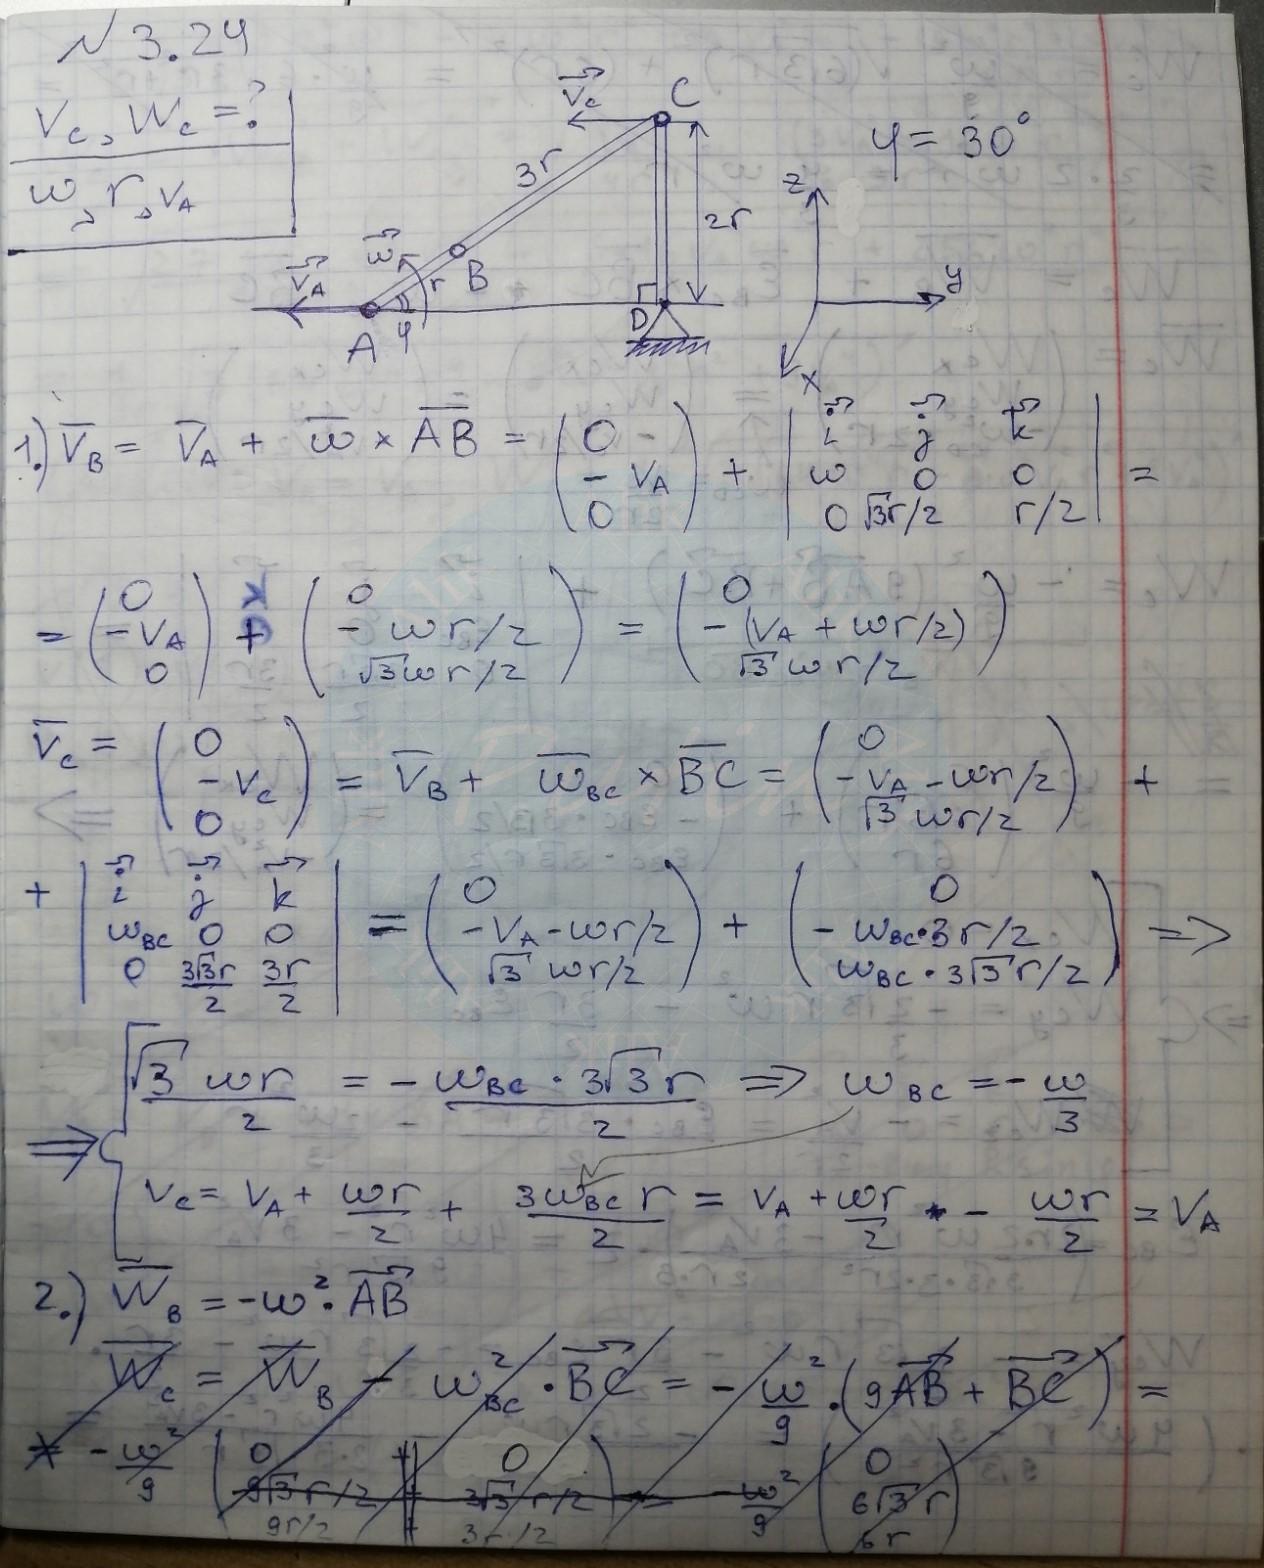 № 3.24
Vc, Wc = ?
ω, r, vA
φ = 30°
vc C
3r
2r
z
y
x
vA ω r B
A φ D
1.) VB = VA + ω × AB = (0 -vA 0) + |i j k ω 0 0 0 √3r/2 r/2| =
= (0 -vA 0) + (0 -ωr/2 √3ωr/2) = (0 -(vA + ωr/2) √3ωr/2)
vc = (0 -vc 0) = VB + ωBC × BC = (0 -vA - ωr/2 √3ωr/2) +
+ |i j k ωBC 0 0 0 3√3r/2 3r/2| = (0 -vA - ωr/2 √3ωr/2) + (0 -ωBC·3r/2 ωBC·3√3r/2) ⇒
√3ωr/2 = -ωBC·3√3r/2 ⇒ ωBC = -ω/3
⇒
vc = vA + ωr/2 + 3ωBC r/2 = vA + ωr/2 - ωr/2 = vA
2.) WB = -ω²·AB
Wc = WB - ωBC²·BC = -ω²/9·(9AB + BC) =
-ω²/9 (0 9√3r/2 9r/2 + 0 3√3r/2 3r/2) = -ω²/9 (0 6√3r 6r)